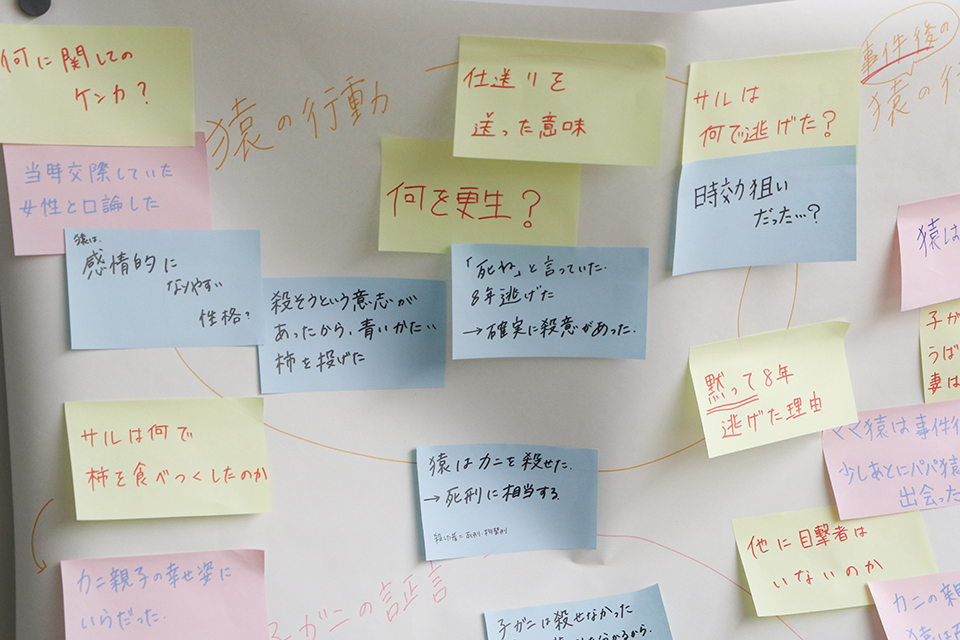 何に関しての
ケンカ?
猿の行動
仕送りを
送った意味
サルは
何で逃げた?
事件後の
猿の行
当時交際していた
女性と口論した
何を更生?
時効狙い
だった…?
猿は、
感情的に
なりやすい
性格?
殺そうという意志が
あったから、青いかたい
柿を投げた
「死ね」と言っていた.
8年逃げた
→確実に殺意があった.
猿は
子が
うば
妻は
黙って8年
逃げた理由
サルは何で
柿を食べつくしたのか
猿はカニを殺せた.
→死刑に相当する.
ママ猿は事件
少しあとにパパ猿
出会った
他に目撃者は
いないのか
カニ親子の幸せ姿に
いらだった.
子ガニの証言
子ガニは殺せなかった
カニの親
猿は